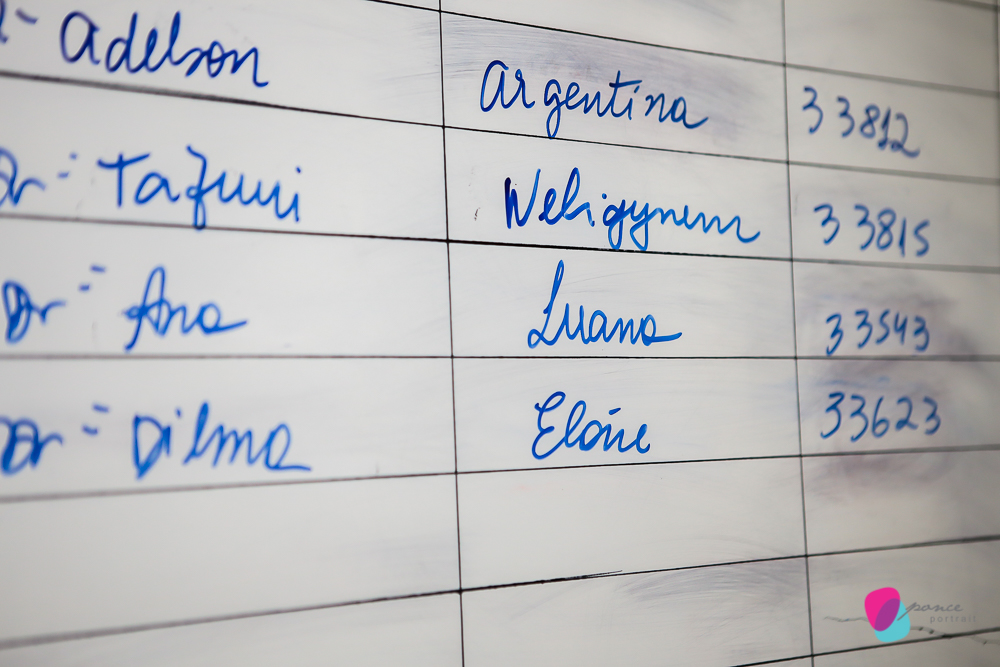 Adelson Argentina 33812
Dr= Tafuri 33815
Dr= Ana Luana 33543
Dr= Dilma Eloíne 33623
pance
portrait